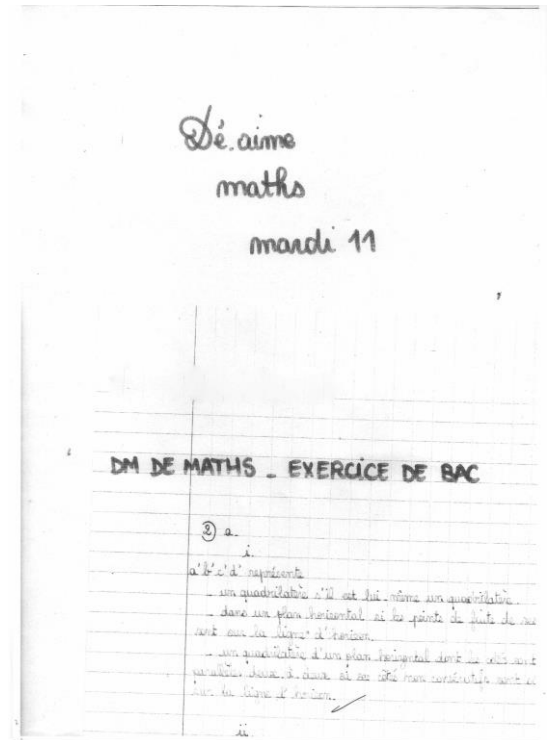 Dé.aime
maths
mardi 11
DM DE MATHS _ EXERCICE DE BAC
② a.
i.
a'b'c'd' représente
_ un quadrilatère s'il est lui-même un quadrilatère.
_ dans un plan horizontal si les points de fuite de ses
sont sur la ligne d'horizon.
_ un quadrilatère d'un plan horizontal dont les côtés sont
parallèles deux à deux si ses côtés non consécutifs sont
sur la ligne d'horizon.
ii.